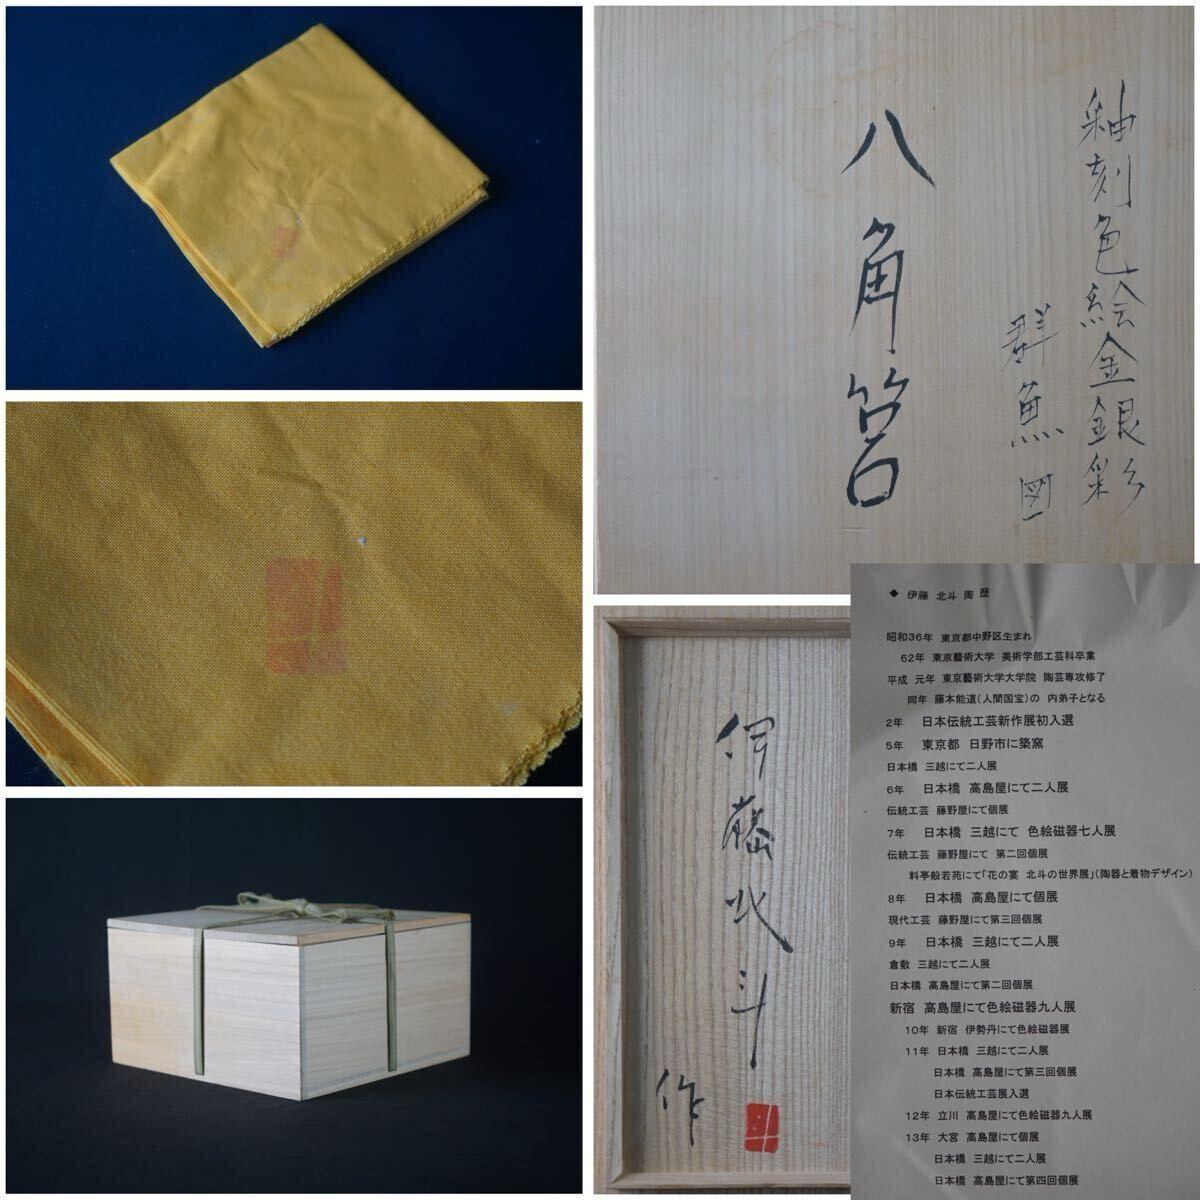 釉刻色絵金銀彩
群魚図
八角筥
伊藤北斗
作
◆ 伊藤 北斗 陶 歴
昭和36年 東京都中野区生まれ
62年 東京藝術大学 美術学部工芸科卒業
平成 元年 東京藝術大学大学院 陶芸専攻修了
同年 藤本能道(人間国宝)の 内弟子となる
2年 日本伝統工芸新作展初入選
5年 東京都 日野市に築窯
日本橋 三越にて二人展
6年 日本橋 高島屋にて二人展
伝統工芸 藤野屋にて個展
7年 日本橋 三越にて 色絵磁器七人展
伝統工芸 藤野屋にて 第二回個展
料亭般若苑にて「花の宴 北斗の世界展」(陶器と着物デザイン)
8年 日本橋 高島屋にて個展
現代工芸 藤野屋にて第三回個展
9年 日本橋 三越にて二人展
倉敷 三越にて二人展
日本橋 高島屋にて第二回個展
新宿 高島屋にて色絵磁器九人展
10年 新宿 伊勢丹にて色絵磁器展
11年 日本橋 三越にて二人展
日本橋 高島屋にて第三回個展
日本伝統工芸展入選
12年 立川 高島屋にて色絵磁器九人展
13年 大宮 高島屋にて個展
日本橋 三越にて二人展
日本橋 高島屋にて第四回個展